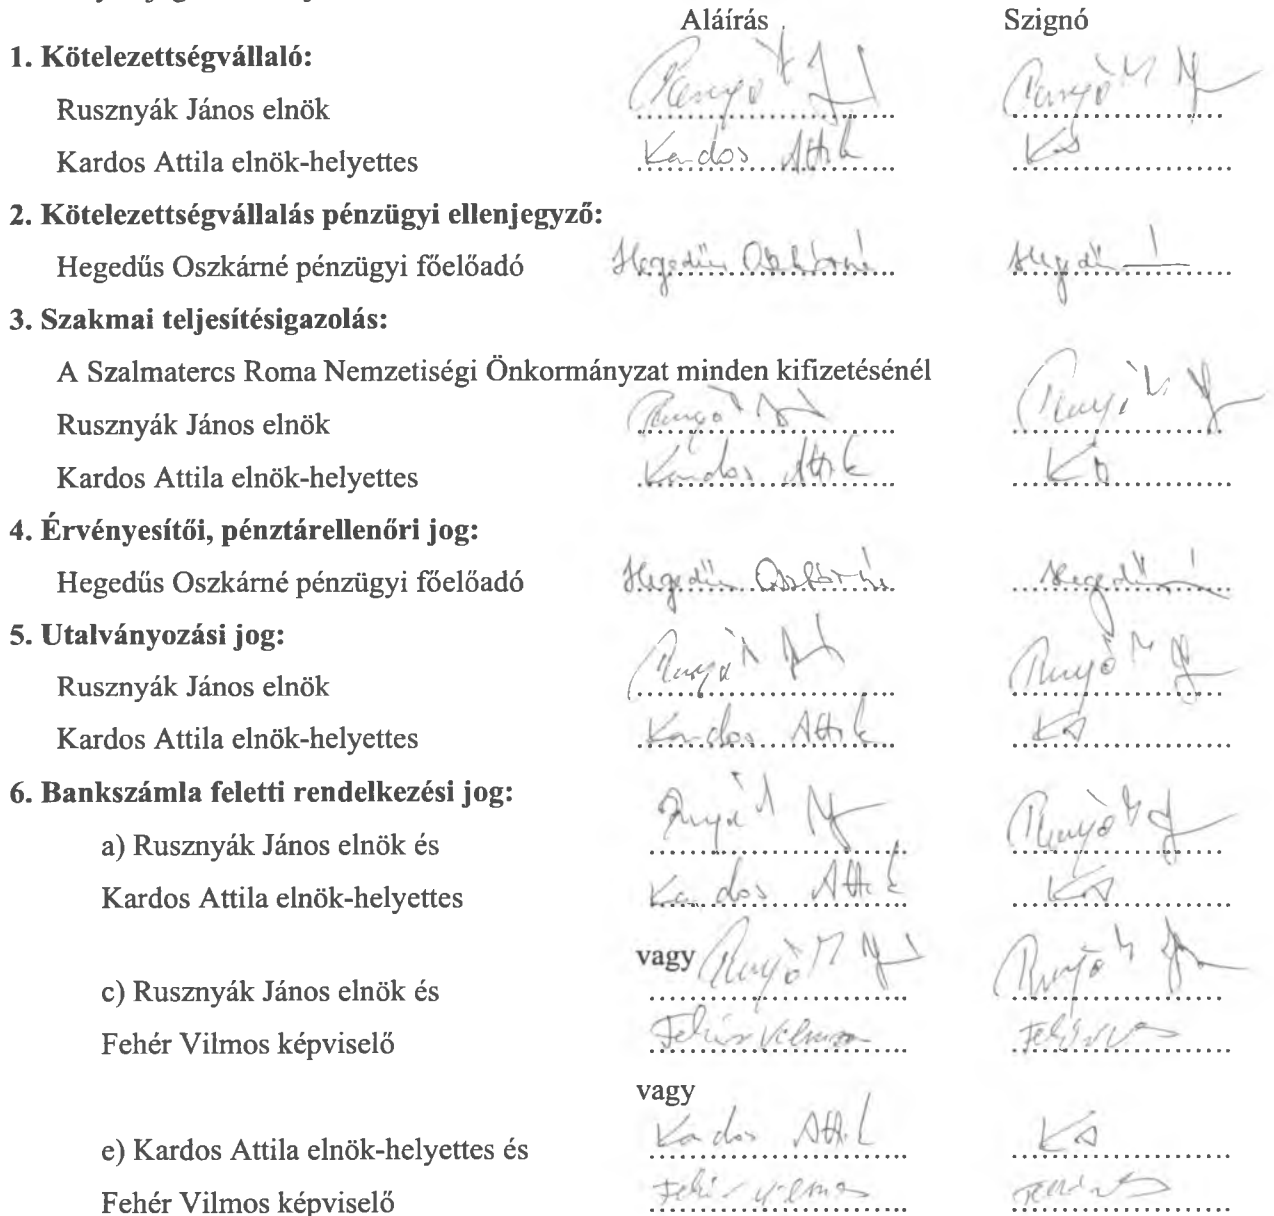 Aláírás Szignó
1. Kötelezettségvállaló:
Rusznyák János elnök
Kardos Attila elnök-helyettes Kardos Attila KA
2. Kötelezettségvállalás pénzügyi ellenjegyző:
Hegedűs Oszkárné pénzügyi főelőadó Hegedűs Oszkárné Hegedűs
3. Szakmai teljesítésigazolás:
A Szalmatercs Roma Nemzetiségi Önkormányzat minden kifizetésénél
Rusznyák János elnök
Kardos Attila elnök-helyettes Kardos Attila KA
4. Érvényesítői, pénztárellenőri jog:
Hegedűs Oszkárné pénzügyi főelőadó Hegedűs Oszkárné Hegedűs
5. Utalványozási jog:
Rusznyák János elnök
Kardos Attila elnök-helyettes Kardos Attila KA
6. Bankszámla feletti rendelkezési jog:
a) Rusznyák János elnök és
Kardos Attila elnök-helyettes Kardos Attila KA
vagy
c) Rusznyák János elnök és
Fehér Vilmos képviselő Fehér Vilmos
vagy
e) Kardos Attila elnök-helyettes és Kardos Attila KA
Fehér Vilmos képviselő Fehér Vilmos